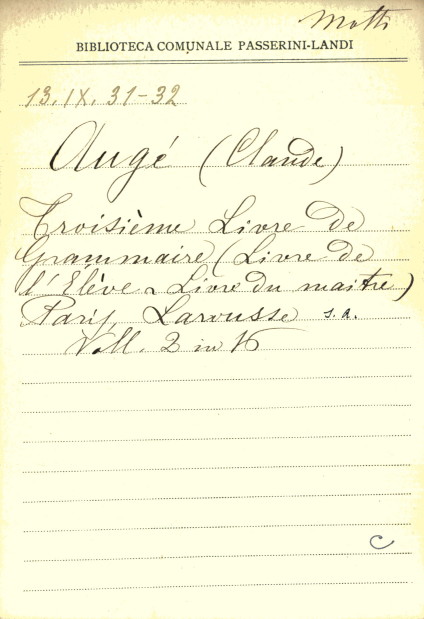 Motti
BIBLIOTECA COMUNALE PASSERINI-LANDI
13. IX. 31-32
Augé (Claude)
Troisième Livre de
Grammaire (Livre de
l'Elève e Livre du maitre)
Paris, Larousse s. a.
Voll. 2 in 16
C